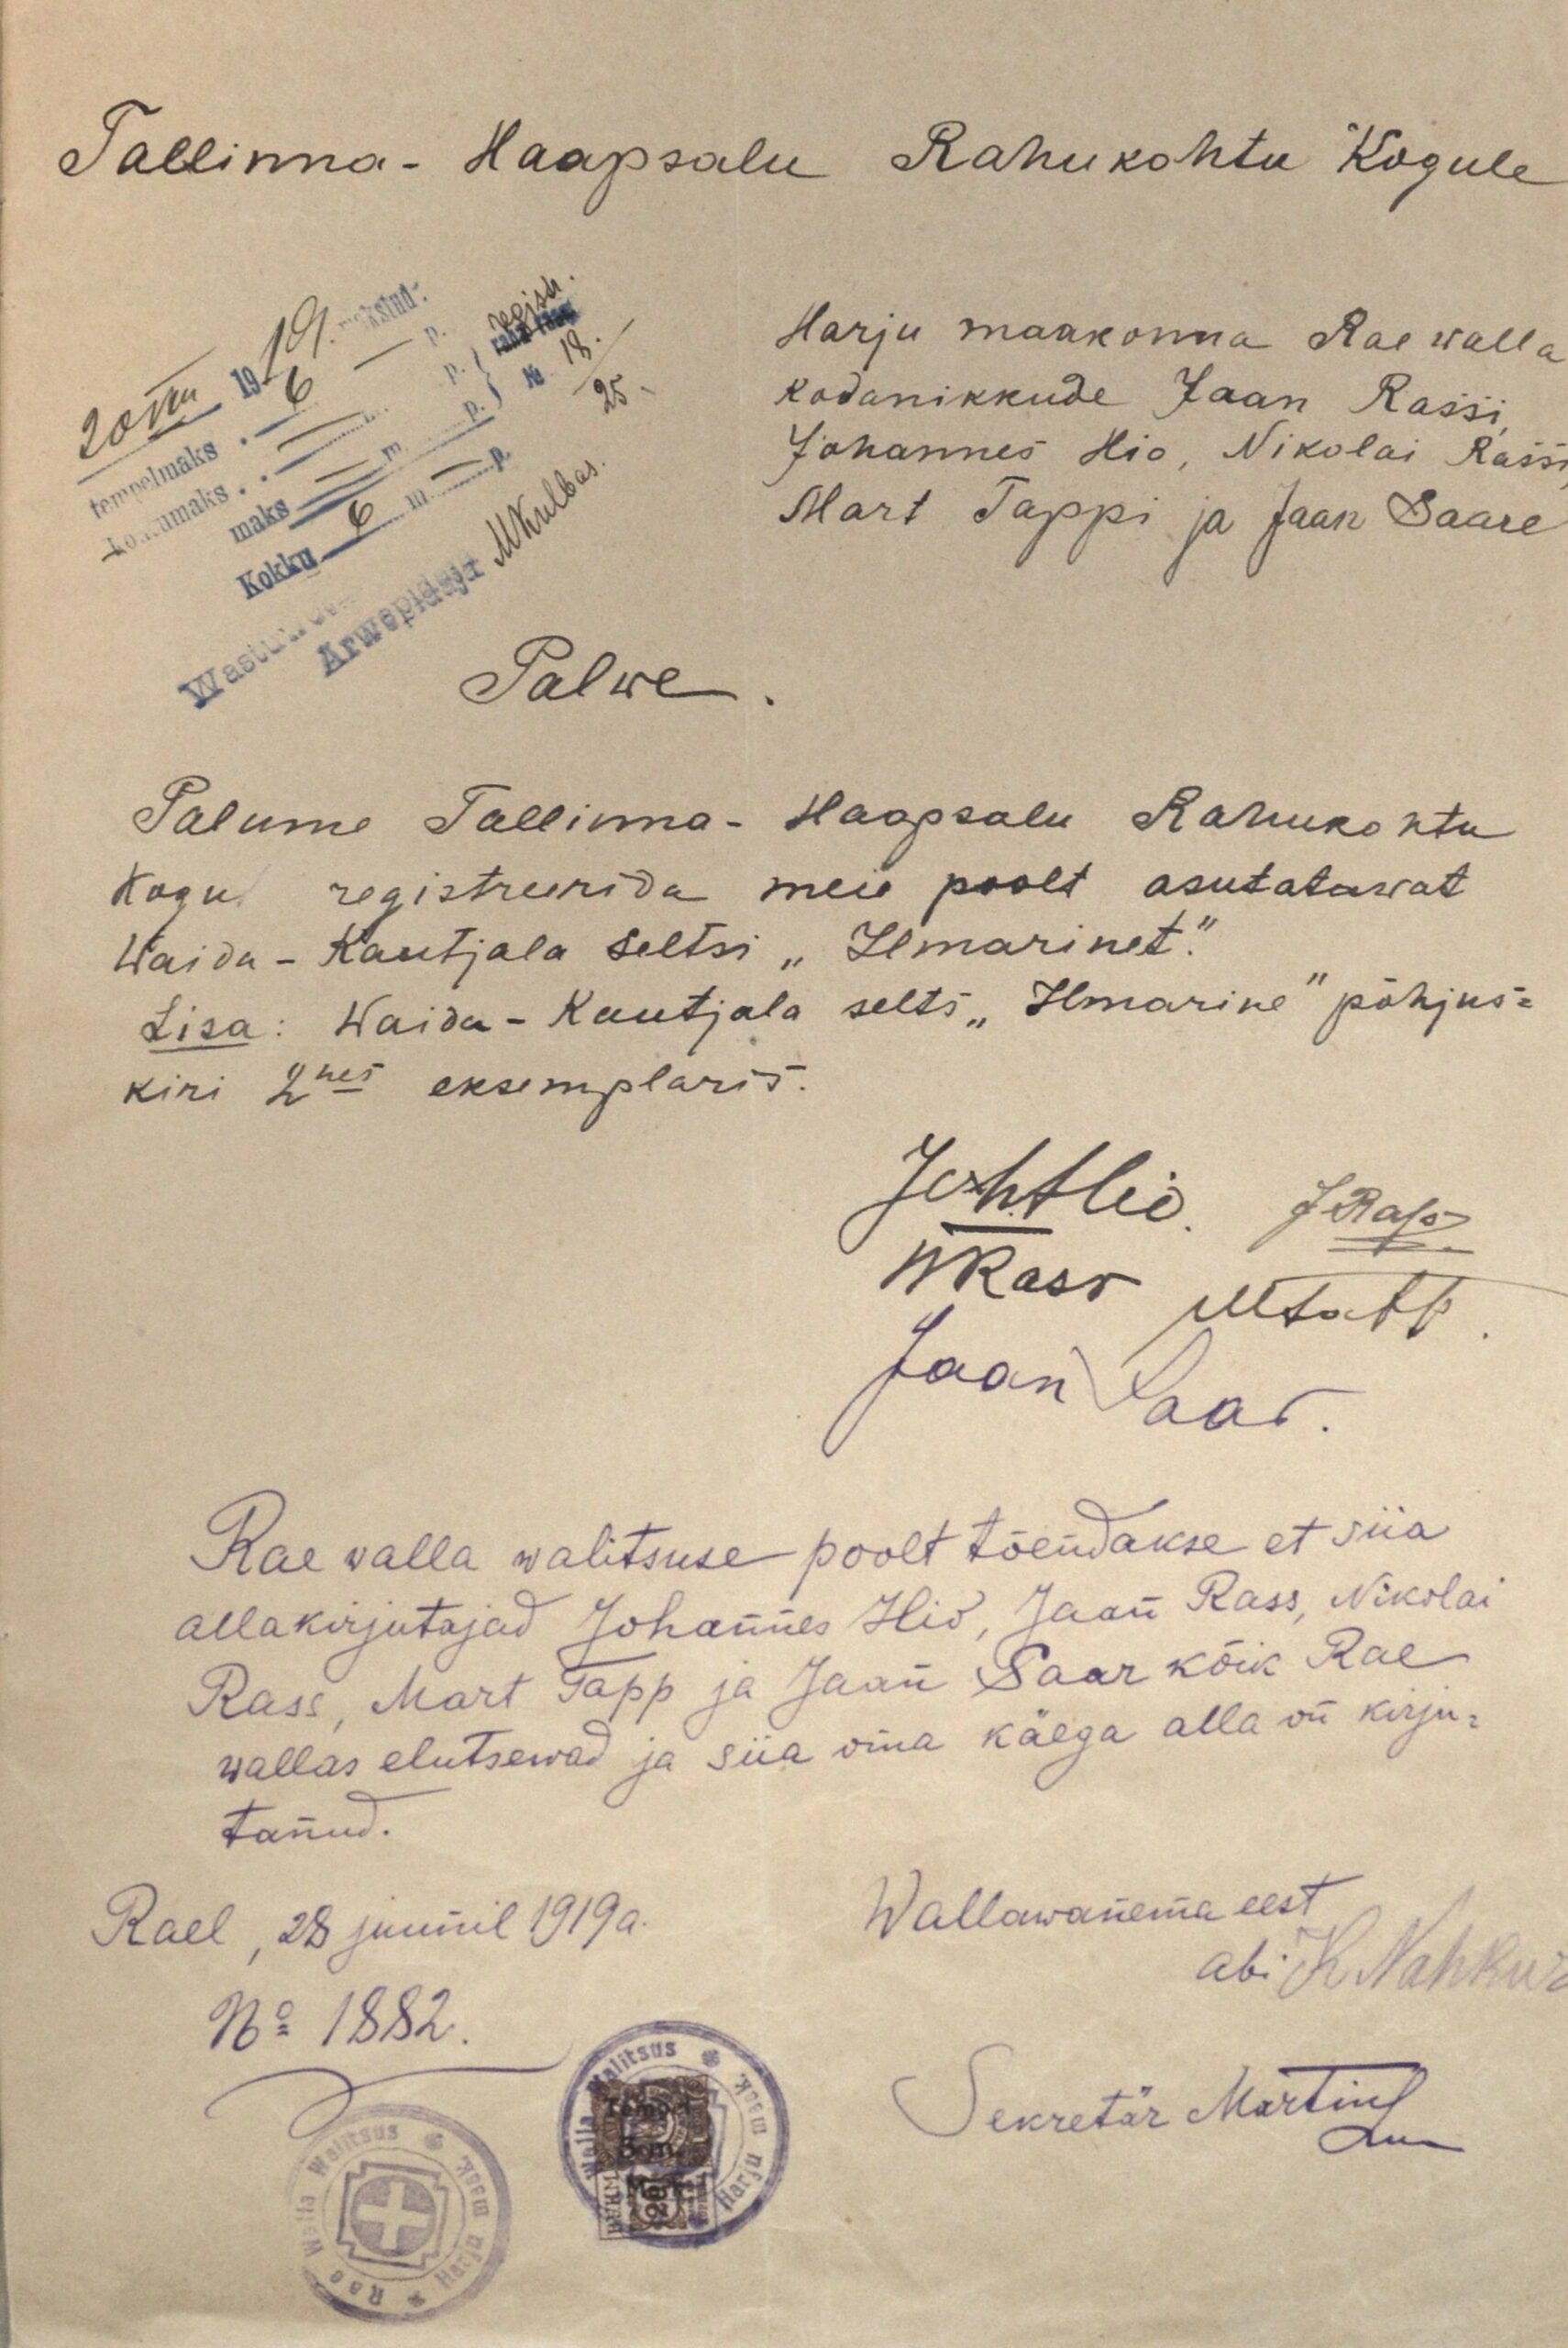 Tallinna - Haapsalu Rahukohtu Kogule
20 VIII 1919. makstud:
tempelmaks . 6 — p.
kohtumaks . . — p.
maks — m p.
Kokku 6 m — p.
regist.
№ 18.
25
Arwepidaja MKulbas.
Harju maakonna Rae walla
kodanikkude Jaan Rassi,
Johannes Hio, Nikolai Rassi,
Mart Tappi ja Jaan Saare
Palwe.
Palume Tallinna - Haapsalu Rahukohtu
Kogu registreerida meie poolt asutatawat
Waida - Kautjala Seltsi „Ilmarinet".
Lisa: Waida - Kautjala selts „Ilmarine" põhjus=
kiri 2nes eksemplaris.
Joh. Hio. J Rass
N Rass M Tapp.
Jaan Saar.
Rae walla walitsuse poolt tõendakse et siia
allakirjutajad Johannes Hio, Jaan Rass, Nikolai
Rass, Mart Tapp ja Jaan Saar kõik Rae
wallas elutsewad ja siia oma käega alla on kirju=
tanud.
Rael, 28 juunil 1919 a.
Wallawanema eest
abi K Nahkur
№ 1882.
Sekretär Martin
Rae Walla Walitsus * Harju maak. *
Walla Walitsus * Harju maak.